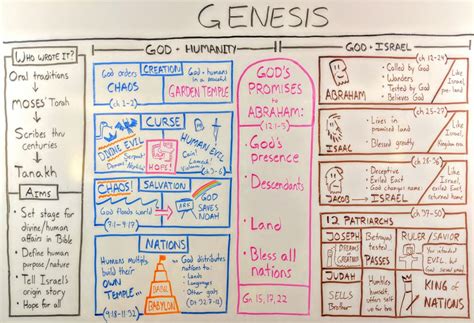 GENESIS
WHO WROTE IT?
Oral traditions
MOSES' Torah
Scribes thru
centuries
Tanakh
AIMS
• Set stage for
divine/human
affairs in Bible
• Define human
purpose/nature
• Tell Israel's
origin story
• Hope for all
GOD + HUMANITY
God orders
CHAOS
(ch 1-2)
CREATION
God + humans
in a beautiful
GARDEN TEMPLE
CURSE
DIVINE EVIL
Serpent
HOPE!
HUMAN EVIL
Cain
Lamech
CHAOS!
God floods world
(7:1-9:17)
SALVATION
GOD
SAVES
NOAH
NATIONS
Humans multiply,
build their
OWN
TEMPLE...
(9:18-11:32)
DARN
BABYLON
God distributes
nations to:
- Lands
- Languages
- Other gods
GOD'S
PROMISES
to
ABRAHAM:
(12:1-3)
• God's
presence
• Descendants
• Land
• Bless all
nations
Gn. 15, 17, 22
GOD + ISRAEL
(ch 12-24)
ABRAHAM
• Called by God
• Wanders
• Tested by God
• Believes God
Like
Israel
(ch 25-27)
ISAAC
• Lives in
promised land
• Blessed greatly
Like
Israel
(ch 28-36)
JACOB → ISRAEL
• Deceptive
• Exiled East
• God changes name
Like Israel,
exiled East,
returned home
12 PATRIARCHS
(ch 37-50)
JOSEPH
DREAMS
of
GREATNESS
Betrayed,
tested...
PASSES
RULER/SAVIOR
"You intended
EVIL. But
God used
JUDAH
SELLS
Brother
Humbles
himself,
offers
self
KING of
NATIONS